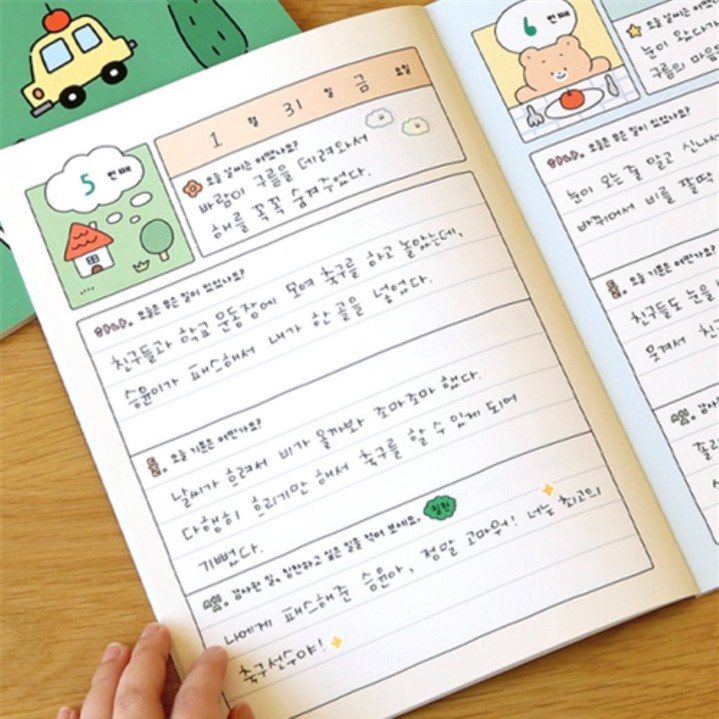 5 번째
1 월 31 일 금 요일
오늘 날씨는 어땠나요?
바람이 구름을 데려와서
해를 꼭꼭 숨겨주었다.
오늘은 무슨 일이 있었나요?
친구들과 학교 운동장에 모여 축구를 하고 놀았는데,
승윤이가 패스해서 내가 한 골을 넣었다.
오늘 기분은 어떤가요?
날씨가 흐려서 비가 올까봐 조마조마 했다.
다행히 흐리기만 해서 축구를 할 수 있게 되어
기뻤다.
감사한 일, 칭찬하고 싶은 일을 적어 보세요. 칭찬
나에게 패스해준 승윤아, 정말 고마워! 너는 최고의
축구선수야!
6 번째
오늘 날씨는 어땠나요?
눈이 왔다가
구름의 마음
오늘은 무슨 일이 있었나요?
눈이 오는 줄 알고 신나서
바뀌어서 비를 쫄딱
오늘 기분은 어떤가요?
친구들도 눈을
웃겨서